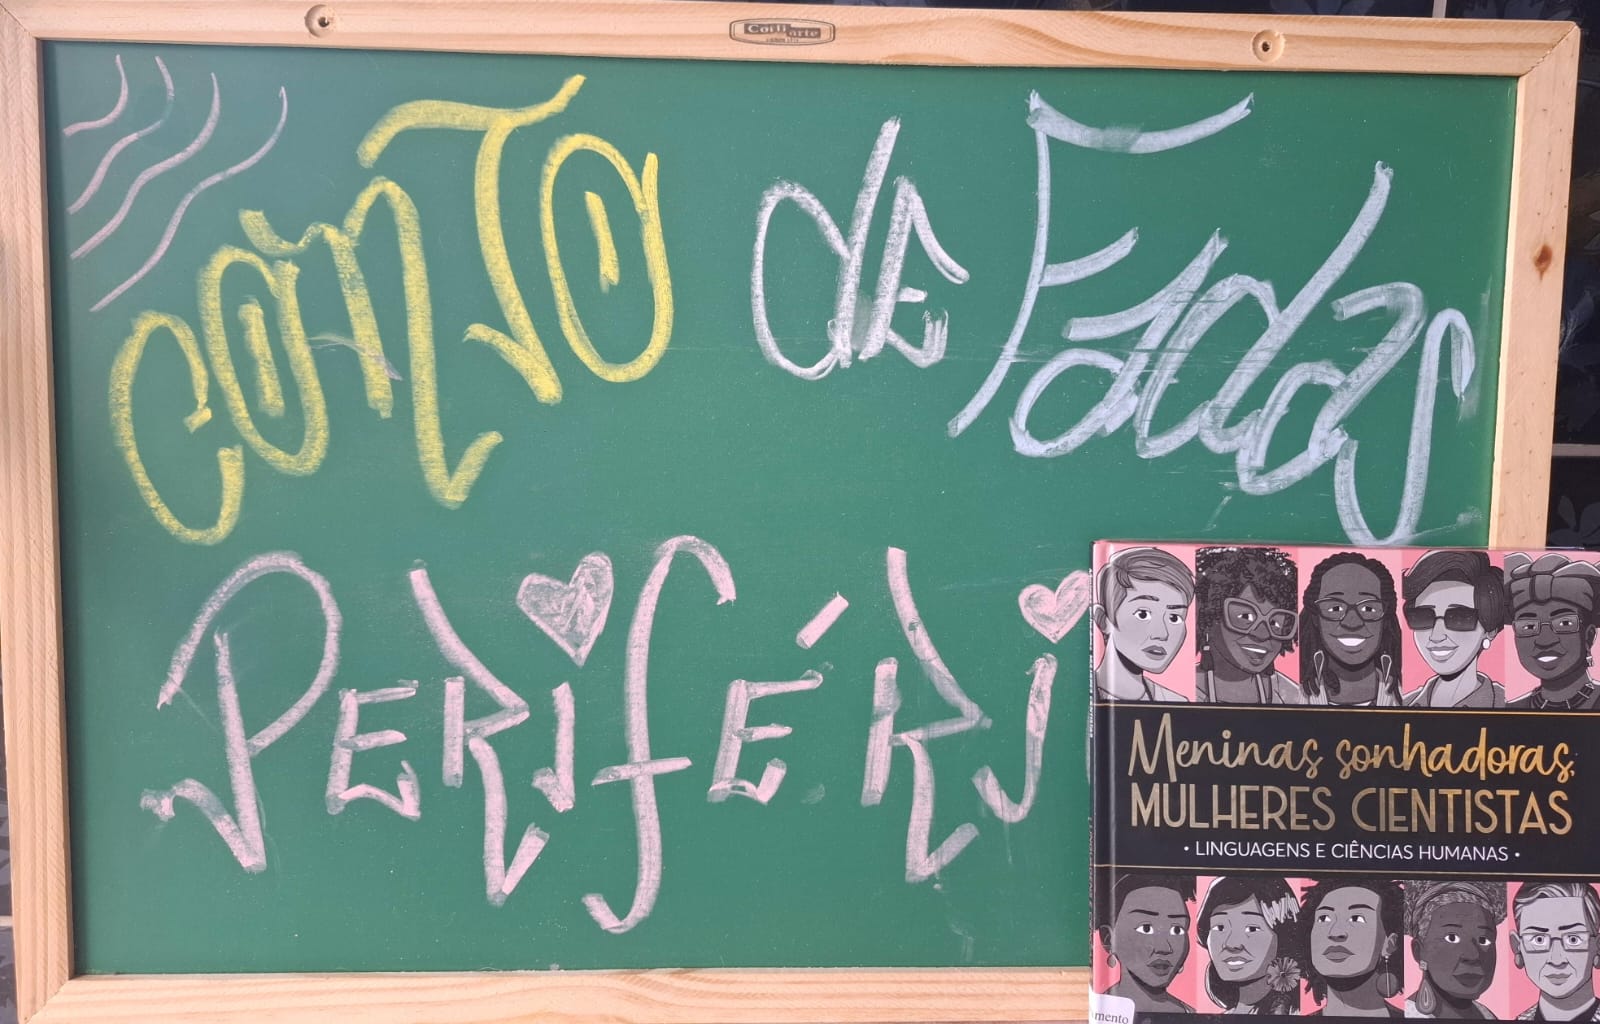 Conti arte
CONTO de Fadas
PERIFÉRI
Meninas sonhadoras,
MULHERES CIENTISTAS
• LINGUAGENS E CIÊNCIAS HUMANAS •
mento